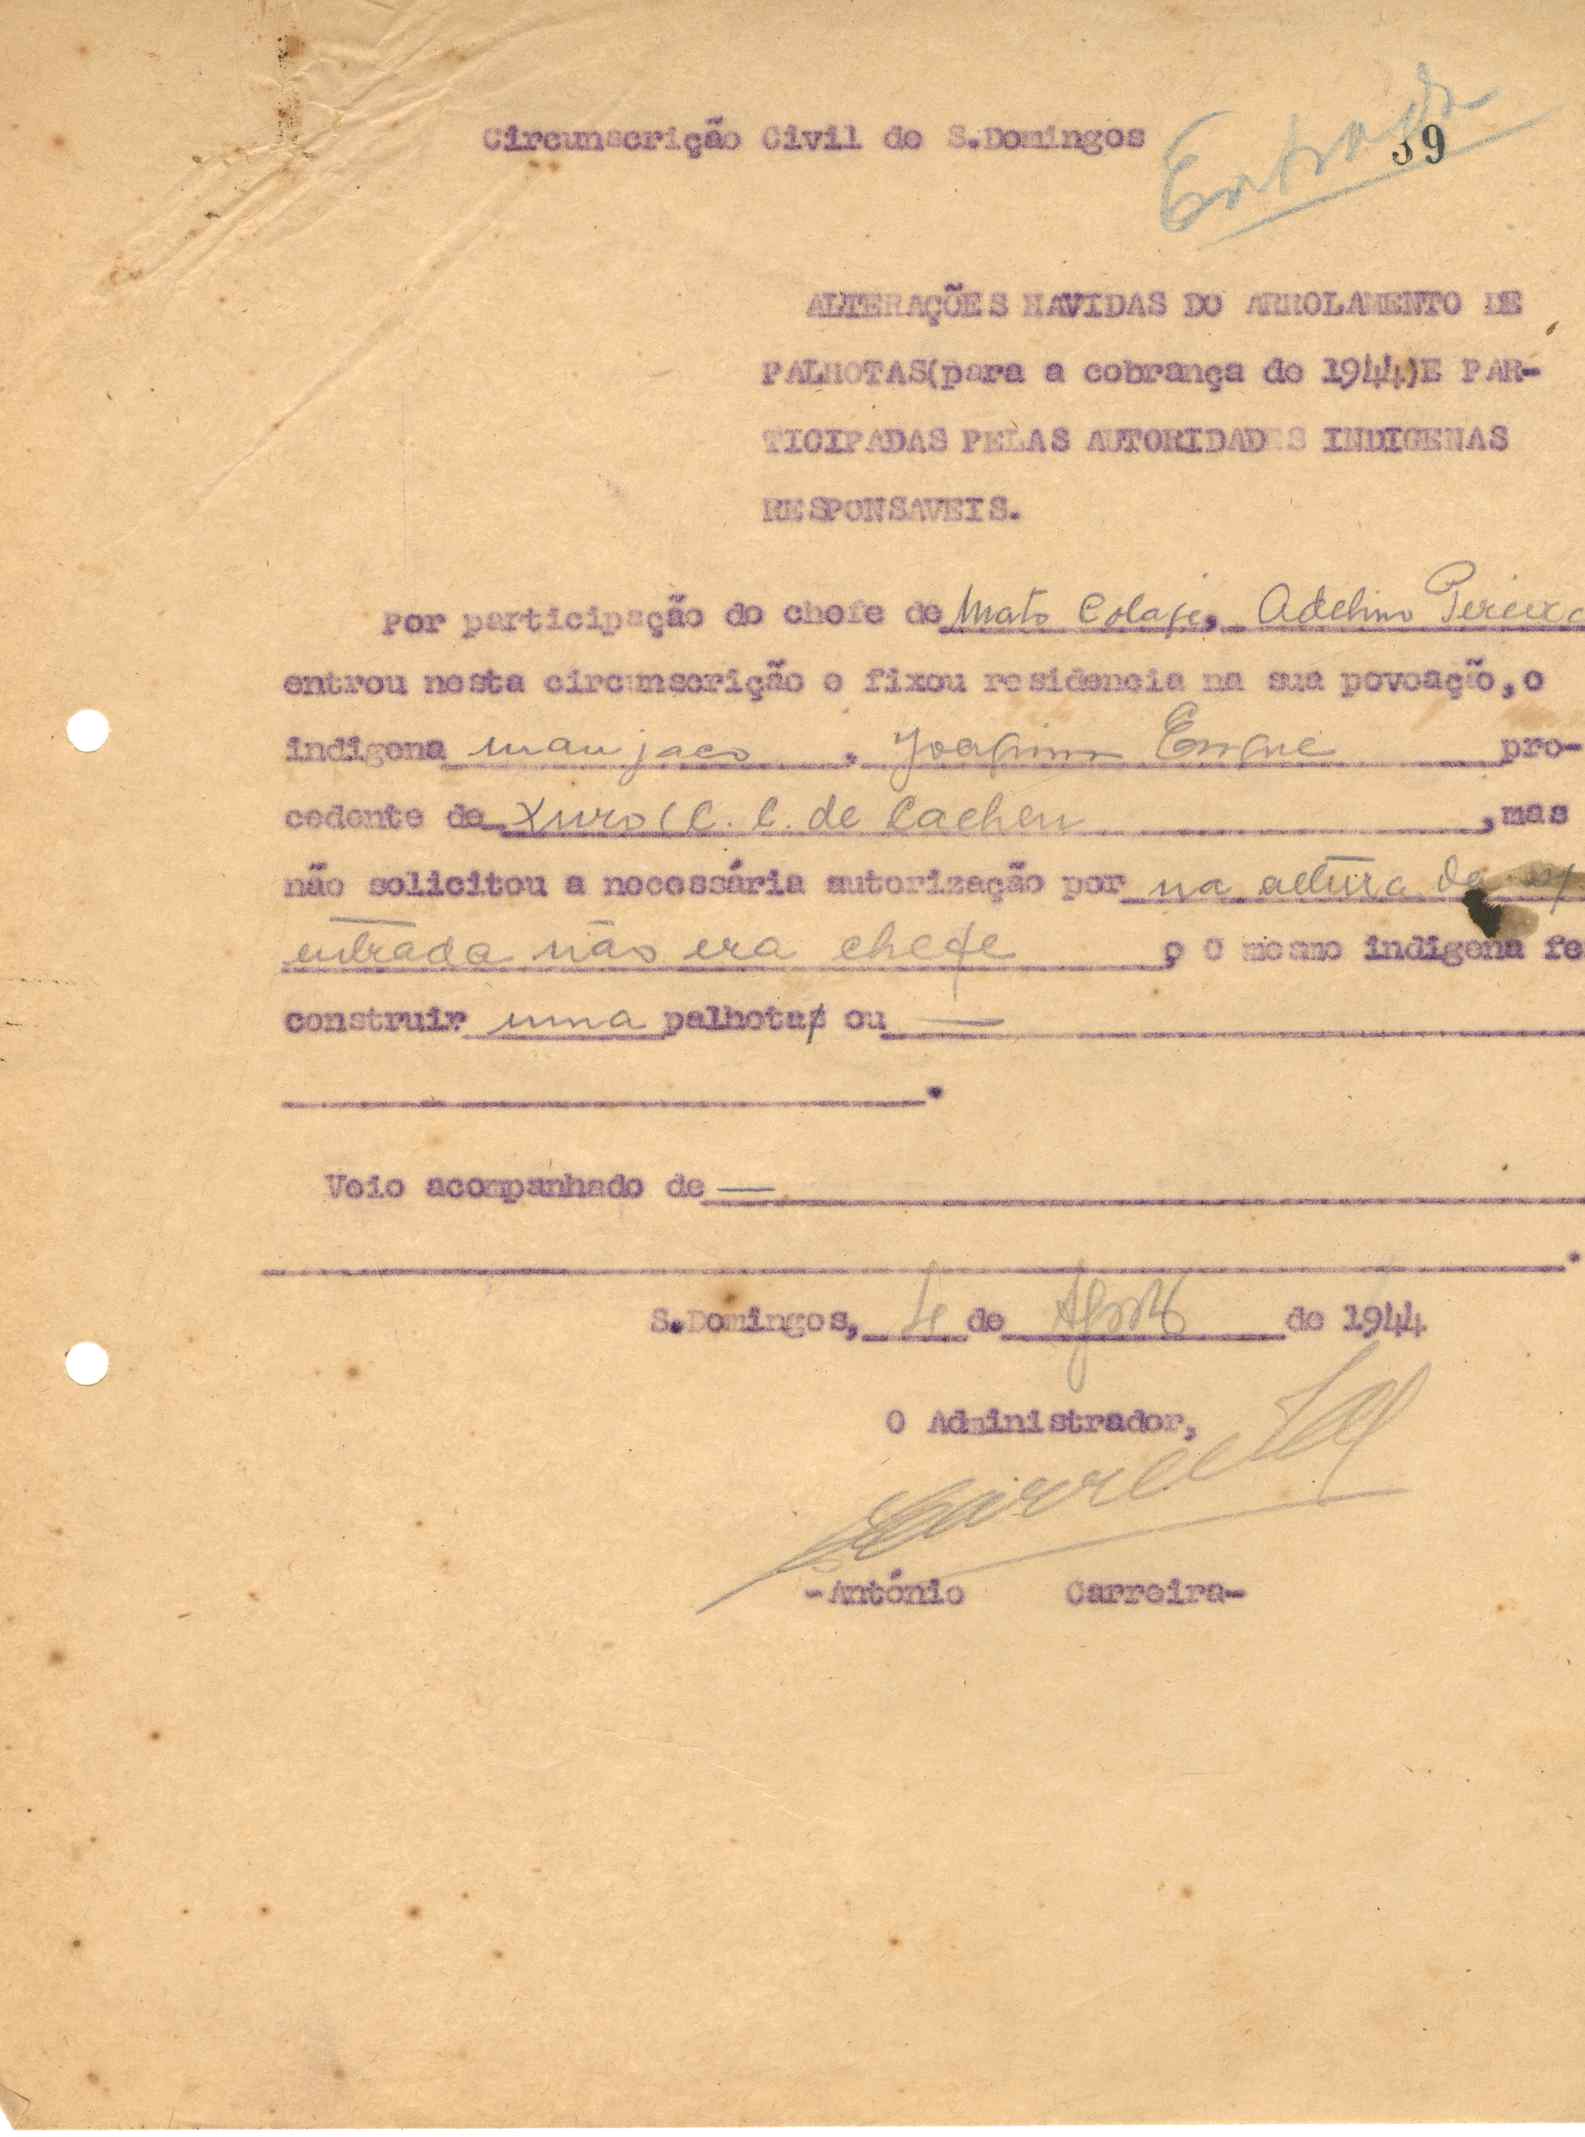 Circunscrição Civil de S.Domingos
Entrada
39
ALTERAÇÕES HAVIDAS DO ARROLAMENTO DE
PALHOTAS(para a cobrança de 1944)E PAR-
TICIPADAS PELAS AUTORIDADES INDIGENAS
RESPONSAVEIS.
Por participação do chefe de Mato Colage, Adelino Pereira
entrou nesta circunscrição e fixou residencia na sua povoação,o
indigena manjaco, Joaquim pro-
cedente de Xuro (C. C. de Cacheu ,mas
não solicitou a necessária autorização por na altura da
entrada não era chefe , O mesmo indigena fe
construir uma palhota ou —
.
Veio acompanhado de —
.
S.Domingos, 4 de Agosto de 1944
O Administrador,
-António Carreira-